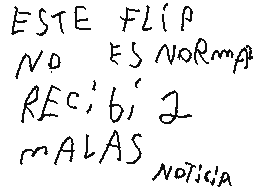 ESTE FLiP
NO ES NORMAL
RECibi 2
MALAS
NOTiCiA